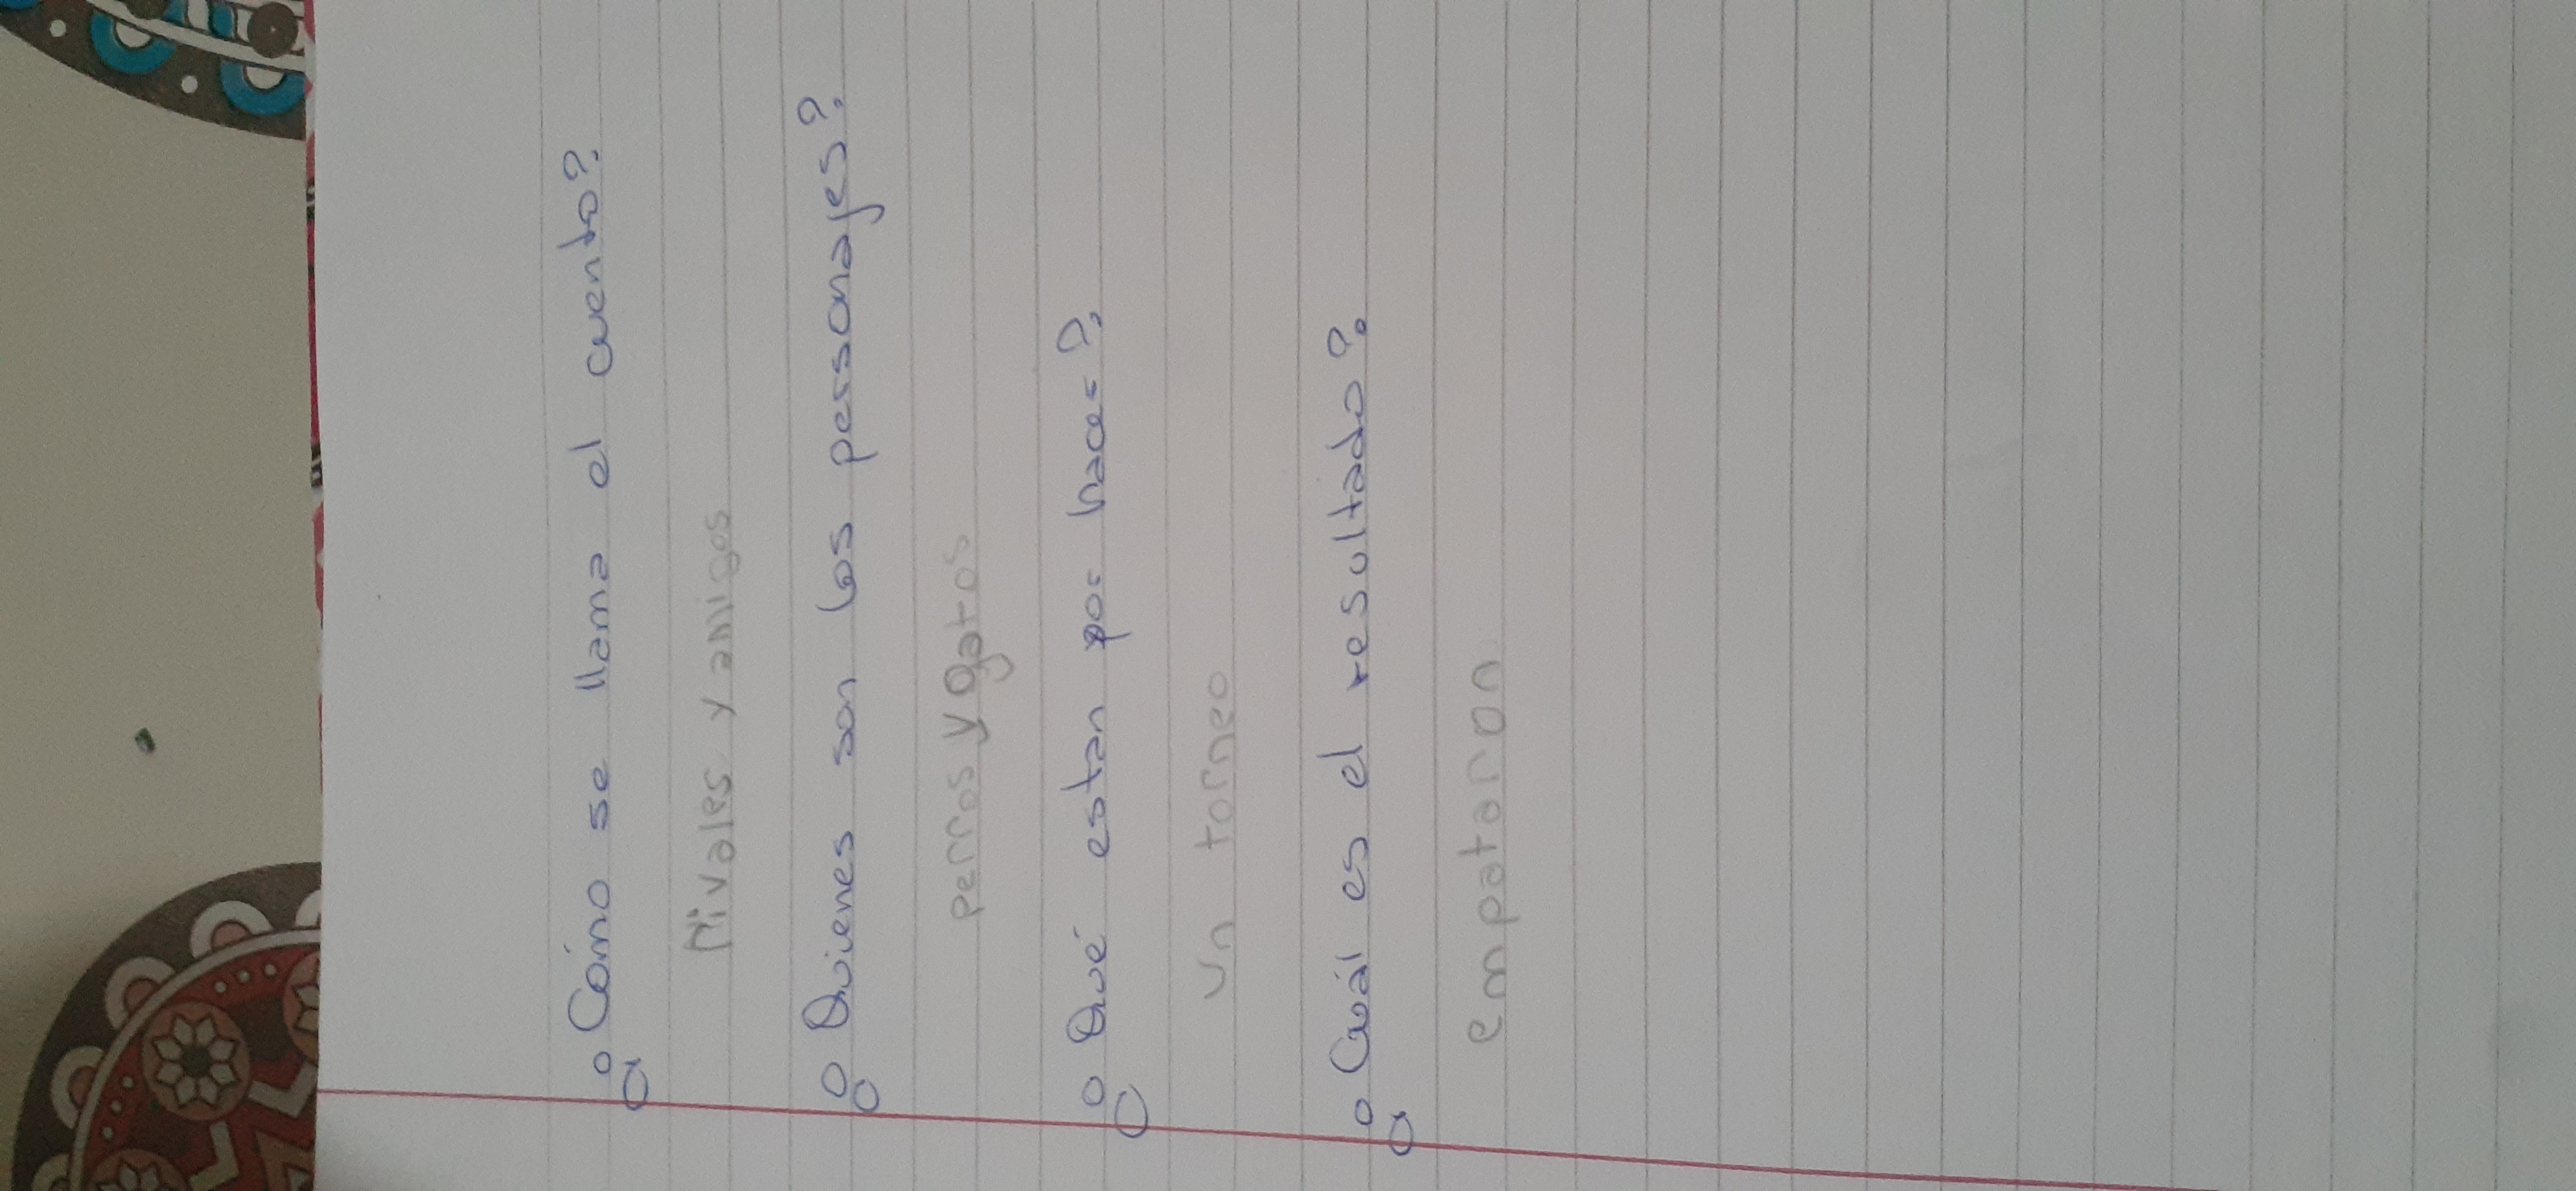 ¿Cómo se llama el cuento?
Rivales y amigos
¿Quienes son los personajes?
perros y gatos
¿Qué estan por hacer?
un torneo
¿Cuál es el resultado?
empataron